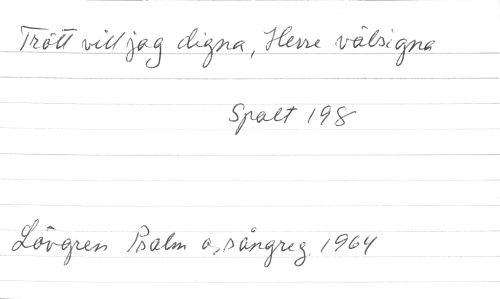 Trött vill jag digna, Herre välsigna
Spalt 198
Lövgren Psalm o. sångreg. 1964